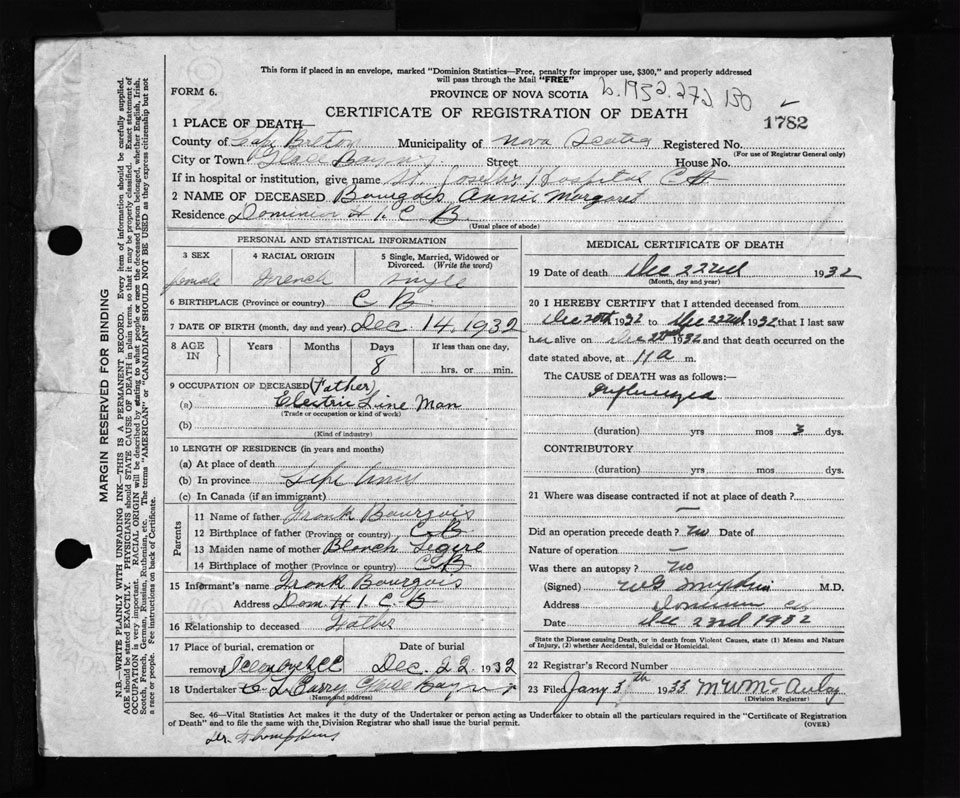 This form if placed in an envelope, marked "Dominion Statistics—Free, penalty for improper use, $300," and properly addressed
will pass through the Mail "FREE"
FORM 6.
PROVINCE OF NOVA SCOTIA
b. 1932. 272 130
CERTIFICATE OF REGISTRATION OF DEATH
1782
1 PLACE OF DEATH—
County of Cape Breton Municipality of Nova Scotia Registered No.
(For use of Registrar General only)
City or Town Glace Bay Street House No.
If in hospital or institution, give name St. Josephs Hospital
2 NAME OF DECEASED Bourgois Annie Margaret
Residence Dominion # 1. C. B.
(Usual place of abode)
PERSONAL AND STATISTICAL INFORMATION
3 SEX 4 RACIAL ORIGIN 5 Single, Married, Widowed or Divorced. (Write the word)
female French Single
6 BIRTHPLACE (Province or country) C B
7 DATE OF BIRTH (month, day and year) Dec. 14. 1932
8 AGE IN Years Months Days If less than one day,
8 hrs. or min.
9 OCCUPATION OF DECEASED (Father)
(a) Electric Line Man
(Trade or occupation or kind of work)
(b)
(Kind of industry)
10 LENGTH OF RESIDENCE (in years and months)
(a) At place of death
(b) In province Life time
(c) In Canada (if an immigrant)
Parents
11 Name of father Frank Bourgois
12 Birthplace of father (Province or country) C B
13 Maiden name of mother Blanch Legere
14 Birthplace of mother (Province or country) C B
15 Informant's name Frank Bourgois
Address Dom # 1. C B
16 Relationship to deceased Father
17 Place of burial, cremation or removal Date of burial
Dec. 22 1932
18 Undertaker Barry Glace Bay
Name and address)
MEDICAL CERTIFICATE OF DEATH
19 Date of death Dec 22nd 1932
(Month, day and year)
20 I HEREBY CERTIFY that I attended deceased from
Dec 20th 1932 to Dec 22nd 1932 that I last saw
her alive on Dec 22nd 1932 and that death occurred on the
date stated above, at 11 a m.
The CAUSE OF DEATH was as follows:—
Influenza
(duration) yrs mos 3 dys.
CONTRIBUTORY
(duration) yrs mos dys.
21 Where was disease contracted if not at place of death?
—
Did an operation precede death? no Date of
Nature of operation —
Was there an autopsy? no
(Signed) M.D.
Address Dominion
Date Dec 23rd 1932
State the Disease causing Death, or in death from Violent Causes, state (1) Means and Nature
of Injury, (2) whether Accidental, Suicidal or Homicidal.
22 Registrar's Record Number
23 Filed Jany 3th 1933 M W McAulay
(Division Registrar)
Sec. 46—Vital Statistics Act makes it the duty of the Undertaker or person acting as Undertaker to obtain all the particulars required in the "Certificate of Registration
of Death" and to file the same with the Division Registrar who shall issue the burial permit.
(OVER)
Dr. Thompkins
MARGIN RESERVED FOR BINDING
N.B.—WRITE PLAINLY WITH UNFADING INK—THIS IS A PERMANENT RECORD. Every item of information should be carefully supplied.
AGE should be stated EXACTLY. PHYSICIANS should STATE CAUSE OF DEATH in plain terms, so that it may be properly classified. Exact statement of
OCCUPATION is very important. RACIAL ORIGIN will be described by stating to what people or race the deceased person belonged, whether English, Irish,
Scotch, French, German, Russian, Ruthenian, etc. The terms "AMERICAN" or "CANADIAN" SHOULD NOT BE USED as they express citizenship but not
a race or people. Fee instructions on back of Certificate.